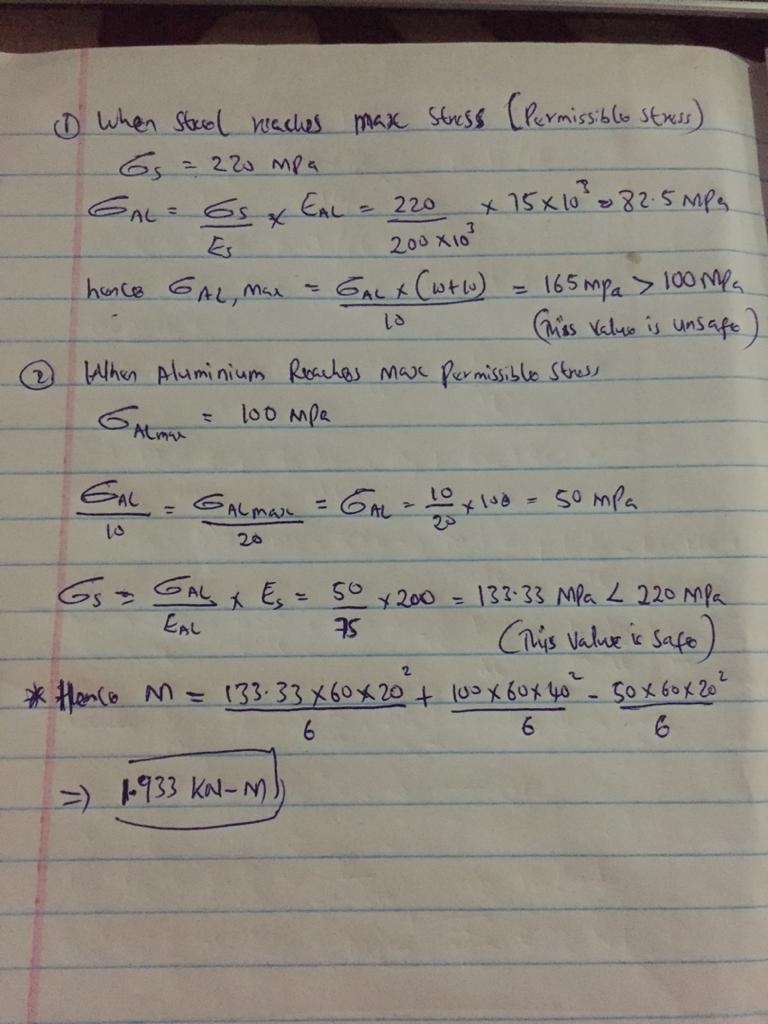 ① When Steel reaches max stress (Permissible stress)
σs = 220 MPa
σAL = σs/Es × EAL = 220/200×10³ × 75×10³ = 82.5 MPa
hence σAL, max = σAL × (10+10)/10 = 165 mpa > 100 MPa
(This value is unsafe)
② When Aluminium Reaches max permissible stress
σALmax = 100 MPa
σAL/10 = σALmax/20 = σAL = 10/20 × 100 = 50 MPa
σs = σAL/EAL × Es = 50/75 × 200 = 133.33 MPa < 220 MPa
(This value is safe)
* Hence M = 133.33×60×20²/6 + 100×60×40²/6 - 50×60×20²/6
⇒ 1.933 KN-M